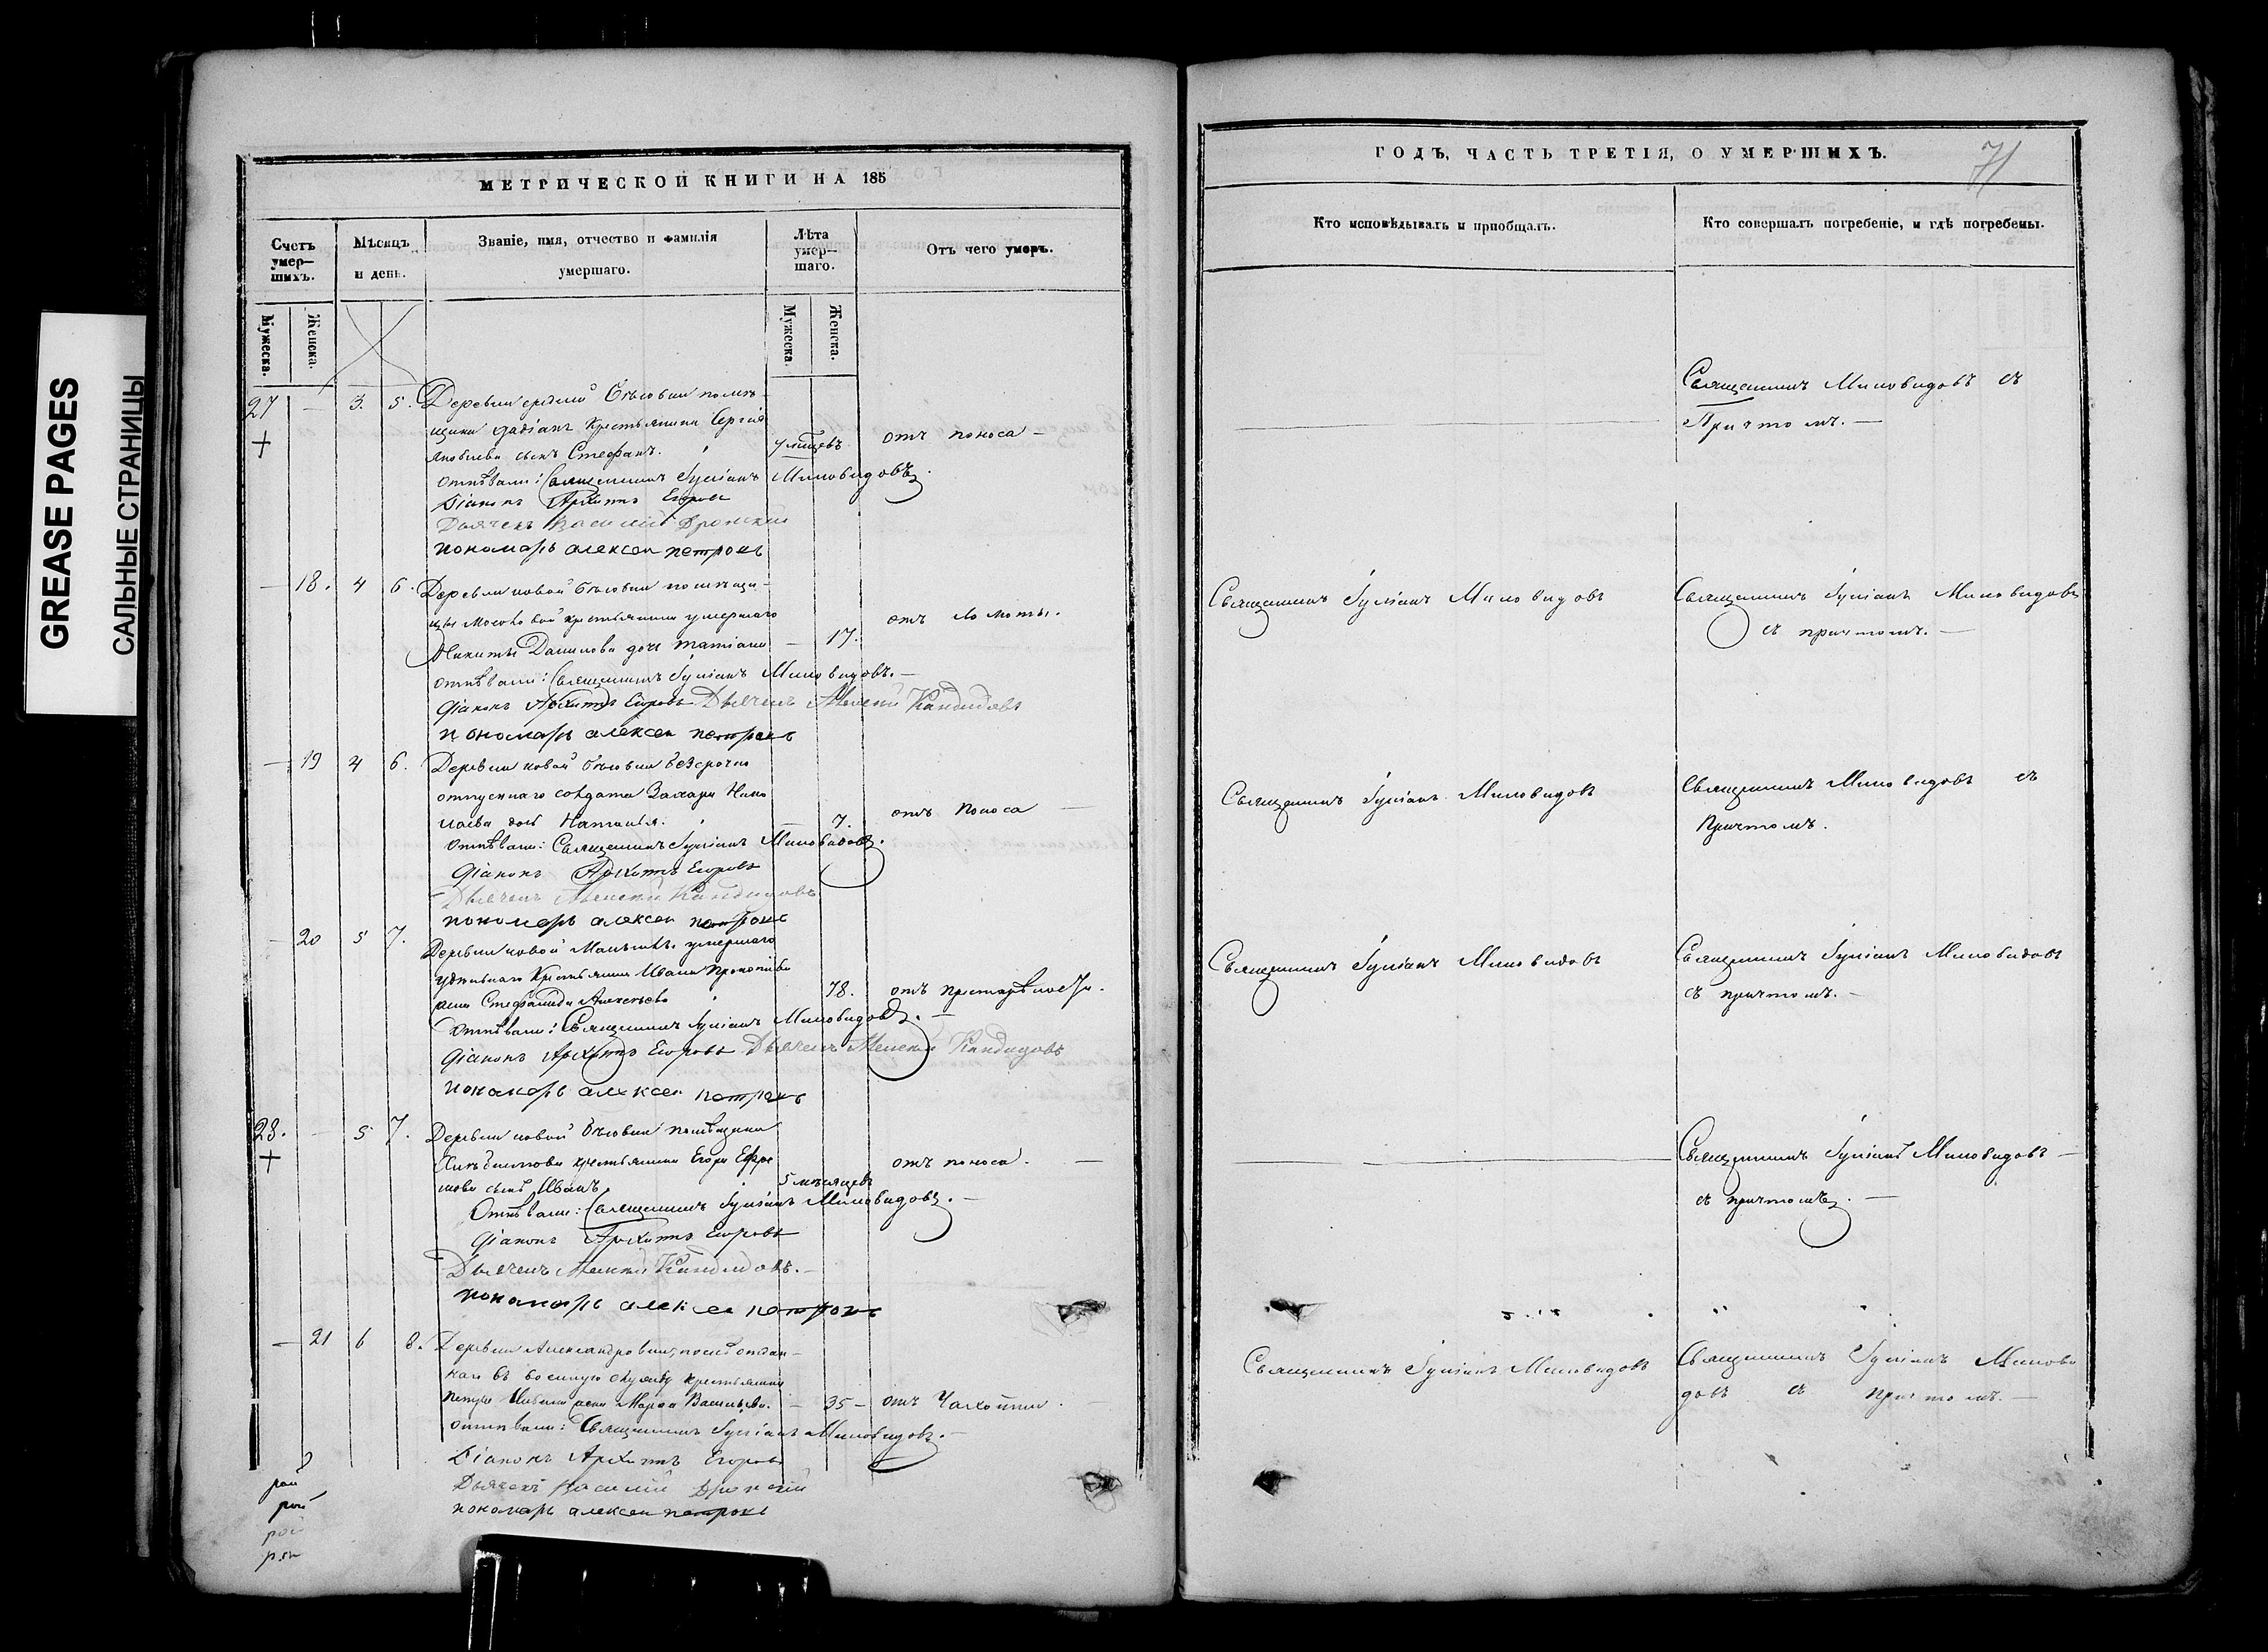 GREASE PAGES
САЛЬНЫЕ СТРАНИЦЫ
МЕТРИЧЕСКОЙ КНИГИ НА 185
Счетъ умер—шихъ.
Мѣсяцъ и день.
Званіе, имя, отчество и фамилія умершаго.
Лѣта умер—шаго.
Отъ чего умеръ.
Мужеска.
Женска.
Мужеска.
Женска.
27 — 3. 5. Деревни
крестьянина Сергія
Яковлева сынъ Стефанъ. отъ поноса —
Отпѣвали: Священникъ Іуліанъ Миловидовъ.
Діаконъ Архипъ Егоровъ
Дьячекъ Василій
пономарь алексеи петровъ
— 18. 4 6. Деревни новой помѣщи—
цы крестьянина умершаго
Никиты Данилова дочь татіана — 17. отъ ломоты.
отпѣвали: Священникъ Іуліанъ Миловидовъ. —
Діаконъ Архипъ Егоровъ Дьячекъ Алексѣй Кандидовъ
пономарь алексеи петровъ
— 19 4 6. Деревни новой безсрочно
отпускнаго солдата Захара Нико
лаева дочь Наталья. — 7. отъ поноса —
Отпѣвали: Священникъ Іуліанъ Миловидовъ.
Діаконъ Архипъ Егоровъ
Дьячекъ Алексѣй Кандидовъ
пономарь алексеи петровъ
— 20 5 7. Деревни новой умершаго
удѣльнаго крестьянина Ивана Прокопіева
жена Стефанида Алексѣева 78. отъ престарѣлости.
Отпѣвали: Священникъ Іуліанъ Миловидовъ. —
Діаконъ Архипъ Егоровъ Дьячекъ Алексѣй Кандидовъ
пономарь алексеи петровъ
28. — 5 7. Деревни новой помѣщика
крестьянина Егора Ефре
мова сынъ Иванъ. 5 мѣсяцевъ отъ поноса. —
Отпѣвали: Священникъ Іуліанъ Миловидовъ. —
Діаконъ Архипъ Егоровъ
Дьячекъ Алексѣй Кандидовъ. —
пономарь алексеи петровъ
— 21 6 8. Деревни Александровки, отдан—
наго въ военную службу крестьянина
Петра жена Марѳа Васильева. — 35 — отъ Чахотки.
отпѣвали: Священникъ Іуліанъ Миловидовъ. —
Діаконъ Архипъ Егоровъ
Дьячекъ Василій
пономарь алексеи петровъ
ГОДЪ, ЧАСТЬ ТРЕТІЯ, О УМЕРШИХЪ.
71
Кто исповѣдывалъ и пріобщалъ.
Кто совершалъ погребеніе, и гдѣ погребены.
Священникъ Миловидовъ съ
Причтомъ. —
Священникъ Іуліанъ Миловидовъ
Священникъ Іуліанъ Миловидовъ
съ причтомъ. —
Священникъ Іуліанъ Миловидовъ
Священникъ Миловидовъ съ
Причтомъ.
Священникъ Іуліанъ Миловидовъ
Священникъ Іуліанъ Миловидовъ
съ причтомъ. —
Священникъ Іуліанъ Миловидовъ —
съ причтомъ. —
Священникъ Іуліанъ Миловидовъ
Священникъ Іуліанъ Милови
довъ съ причтомъ. —